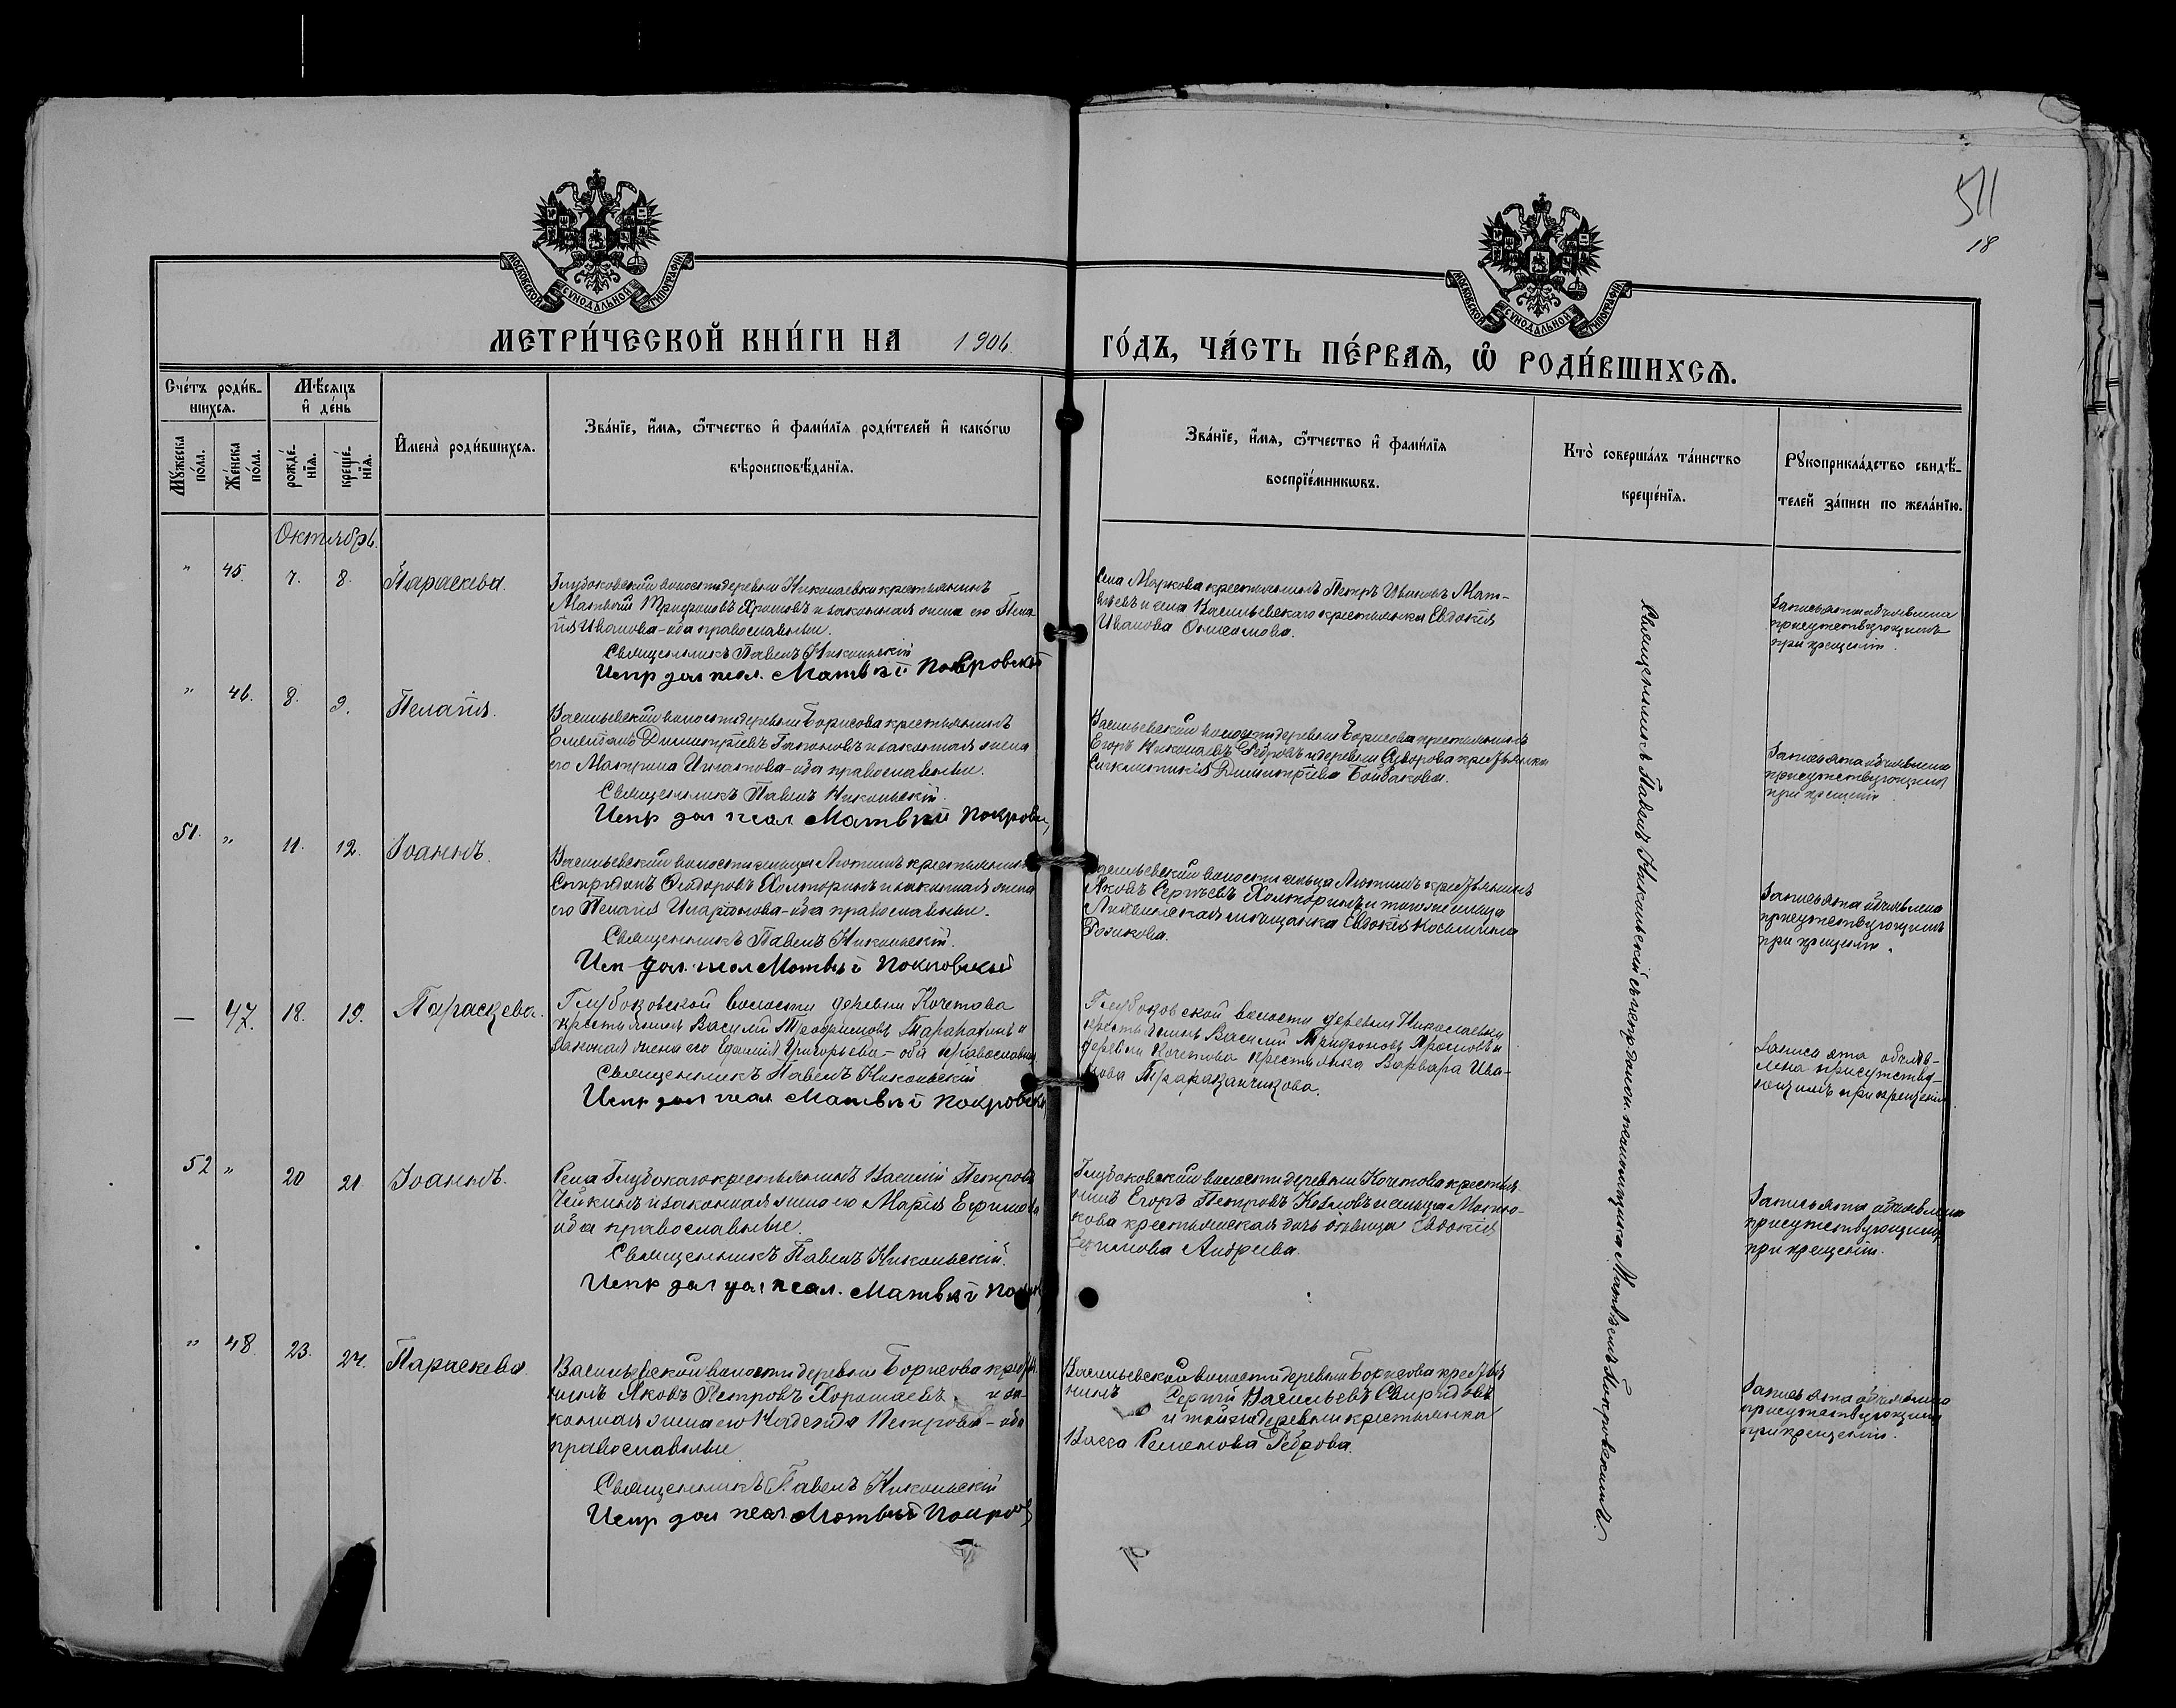 511
18
МОСКОВСКОЙ СѴНОДАЛЬНОЙ ТИПОГРАФІИ
МОСКОВСКОЙ СѴНОДАЛЬНОЙ ТИПОГРАФІИ
МЕТРИ́ЧЕСКОЙ КНИ́ГИ НА 1906
ГО́ДЪ, ЧА́СТЬ ПЕ́РВАѦ, Ѽ РОДИ́ВШИХСѦ.
Сче́тъ роди́в-
шихсѧ.
Мѣ́сѧцъ
и҆ де́нь
Мꙋ́жеска
по́ла.
Же́нска
по́ла.
рожде́-
нїѧ.
креще́-
нїѧ.
И҆мена̀ роди́вшихсѧ.
Зва́нїе, и҆́мѧ, ѻ҆́тчество и҆ фами́лїѧ роди́телей и҆ како́гѡ
вѣроисповѣ́данїѧ.
Зва́нїе, и҆́мѧ, ѻ҆́тчество и҆ фами́лїѧ
воспрїе́мникѡвъ.
Кто̀ соверша́лъ та́инство
креще́нїѧ.
Рꙋкоприкла́дство свидѣ́-
телей за́писи по жела́нїю.
Октябрь.
" 45. 7. 8. Параскева.
Глубоковской волости деревни Николаевки крестьянинъ
Матвей Трифоновъ Хромовъ и законная жена его Пела-
гія Иванова - оба православные.
Священникъ Павелъ Никольскій
Испр дол псал. Матвѣй Покровскій
Села Маркова крестьянинъ Петръ Ивановъ Мат-
вѣевъ и села Васильевскаго крестьянка Евдокія
Иванова
Запись эта объявлена
присутствующимъ
при крещеніи.
" 46. 8. 9. Пелагія.
Васильевской волости деревни Борисова крестьянинъ
Емеліанъ Димитріевъ Гапоновъ и законная жена
его Матрона Игнатова - оба православные.
Священникъ Павелъ Никольскій.
Испр дол псал Матвѣй Покровск
Васильевской волости деревни Борисова крестьянинъ
Егоръ Николаевъ Ребровъ и деревни крестьянка
Синклитикія Димитріева Бойбакова.
Запись эта объявлена
присутствующимъ
при крещеніи.
51. " 11. 12. Іоаннъ.
Васильевской волости сельца крестьянинъ
Спиридонъ Феодоровъ Холторинъ и законная жена
его Пелагія Иларіонова - оба православные.
Священникъ Павелъ Никольскій.
Исп дол. псал Матвѣй Покровскій
Васильевской волости сельца крестьянинъ
Яковъ Сергѣевъ Холторинъ и того же сельца
мѣщанка Евдокія Косьмина
Розикова.
Запись эта объявлена
присутствующимъ
при крещеніи.
— 47. 18. 19. Параскева.
Глубоковской волости деревни Кочетова
крестьянинъ Василій Трофимовъ и
законная жена его Григорьева - оба православные
Священникъ Павелъ Никольскій
Испр дол псал Матвѣй Покровскій
Глубоковской волости деревни Николаевки
крестьянинъ Василій Трифоновъ Хромовъ и
деревни Кочетова крестьянка Варвара Ива-
нова Тараканчикова.
Запись эта объяв-
лена присутству-
ющимъ при крещеніи
52 " 20 21. Іоаннъ.
Села Глубокаго крестьянинъ Василій Петровъ
Чейкинъ и законная жена его Марія Ефимова
оба православные
Священникъ Павелъ Никольскій.
Испр дол псал. Матвѣй
Глубоковской волости деревни Кочетова крестья-
нинъ Егоръ Петровъ Козловъ и сельца Матю-
кова крестьянская дочь дѣвица Евдокія
Андреева.
Запись эта объявлена
присутствующимъ
при крещеніи.
" 48. 23. 24. Параскева
Васильевской волости деревни Борисова крестья-
нинъ Яковъ Петровъ Хорошаевъ и за-
конная жена его Надежда Петрова - оба
православные
Священникъ Павелъ Никольскій
Испр дол псал Матвѣй Покров
Васильевской волости деревни Борисова крестья-
нинъ Сергій Васильевъ Свиридовъ
и той же деревни крестьянка
Васса Семенова Реброва.
Запись эта объявлена
присутствующимъ
при крещеніи.
Священникъ Павелъ Никольскій съ испр. должн. псаломщика Матвѣемъ Покровскимъ.